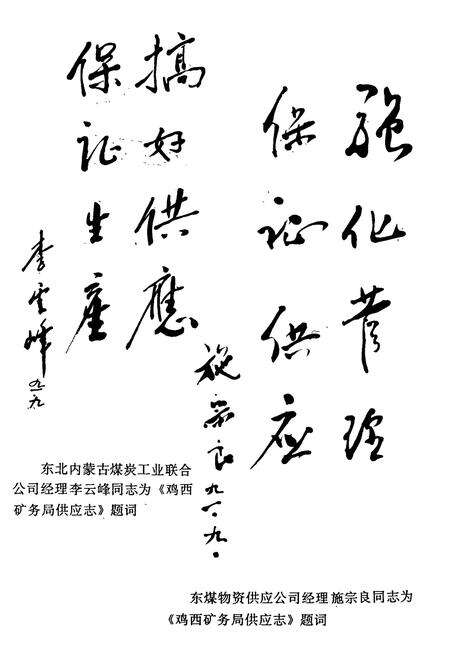 强化管理
保证供应
施宗良 九一、九、
搞好供應
保证生産
李雲峰 九一、九
东北内蒙古煤炭工业联合
公司经理李云峰同志为《鸡西
矿务局供应志》题词
东煤物资供应公司经理施宗良同志为
《鸡西矿务局供应志》题词